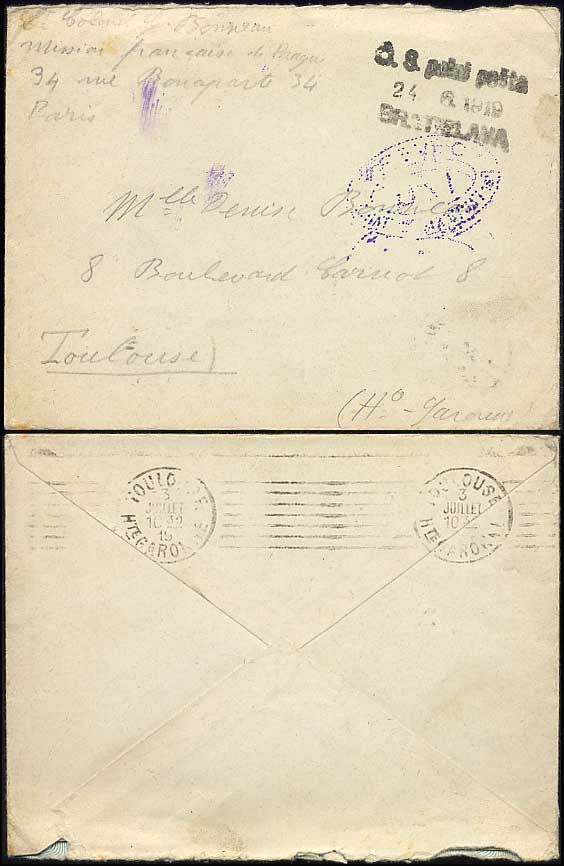 Colonel J. Bonneau
Mission française de Prague
34 rue Bonaparte 34
Paris
Č. S. polní pošta
24 6. 1919
BRATISLAVA
Mlle Denise Bonneau
8 Boulevard Carnot 8
Toulouse
(Hte-Garonne)
TOULOUSE
3
JUILLET
10 30
19
HTE GARONNE
TOULOUSE
3
JUILLET
10 3
HTE GARONNE